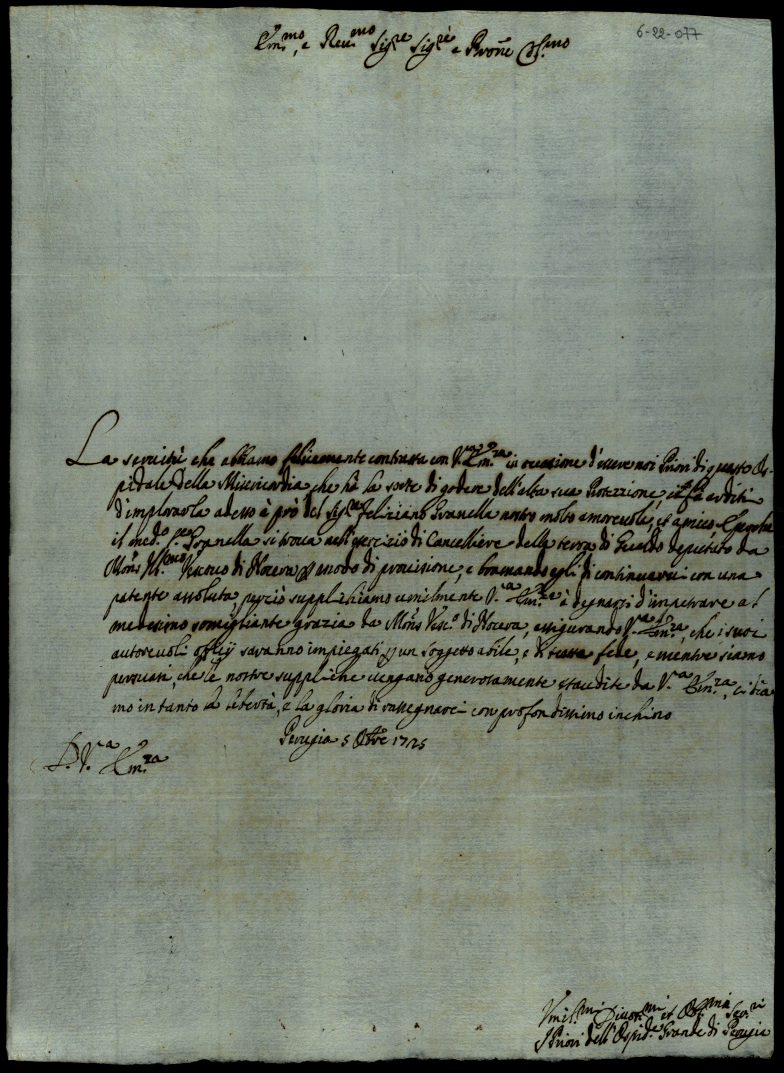 6-22-077
Em.mo, e Reu.mo Sig.re Sig.re e Prone Col.mo
La seruitù che abbiamo felicemente contratta con V.ra Em.za in occasione d'essere noi Priori di questo Os-
pidale della Misericordia, che hà la sorte di godere dell'alta sua Protezzione, ci fà arditi
d'implorarla adesso à prò del Sig.re Feliziano Granella nostro molto amoreuole, et amico,
il med.o Sig.re Granella si troua nell'esercizio di Cancelliere della terra di Gualdo deputato da
Mons.r Ill.mo Vescouo di Nocera p modo di prouisione, e bramando egli di continuarui con una
patente assoluta perciò supplichiamo umilmente V.ra Em.za à degnarsi d'impetrare al
medesimo somigliante grazia da Mons.r Vesc.o di Nocera, assigurando V.ra Em.za, che i suoi
autoreuoli offizij saranno impiegati p un soggetto abile, e di tutta fede, e mentre siamo
persuasi, che le nostre suppliche uengano generosamente esaudite da V.ra Em.za, ci dia
mo intanto la libertà, e la gloria di rassegnarci con profondissimo inchino
Perugia 5 Obre 1725
D. V.ra Em.za
Vmil.mi Diuot.mi et Obl.mi Ser.ri
I Priori dell'Ospid.e Grande di Perugia